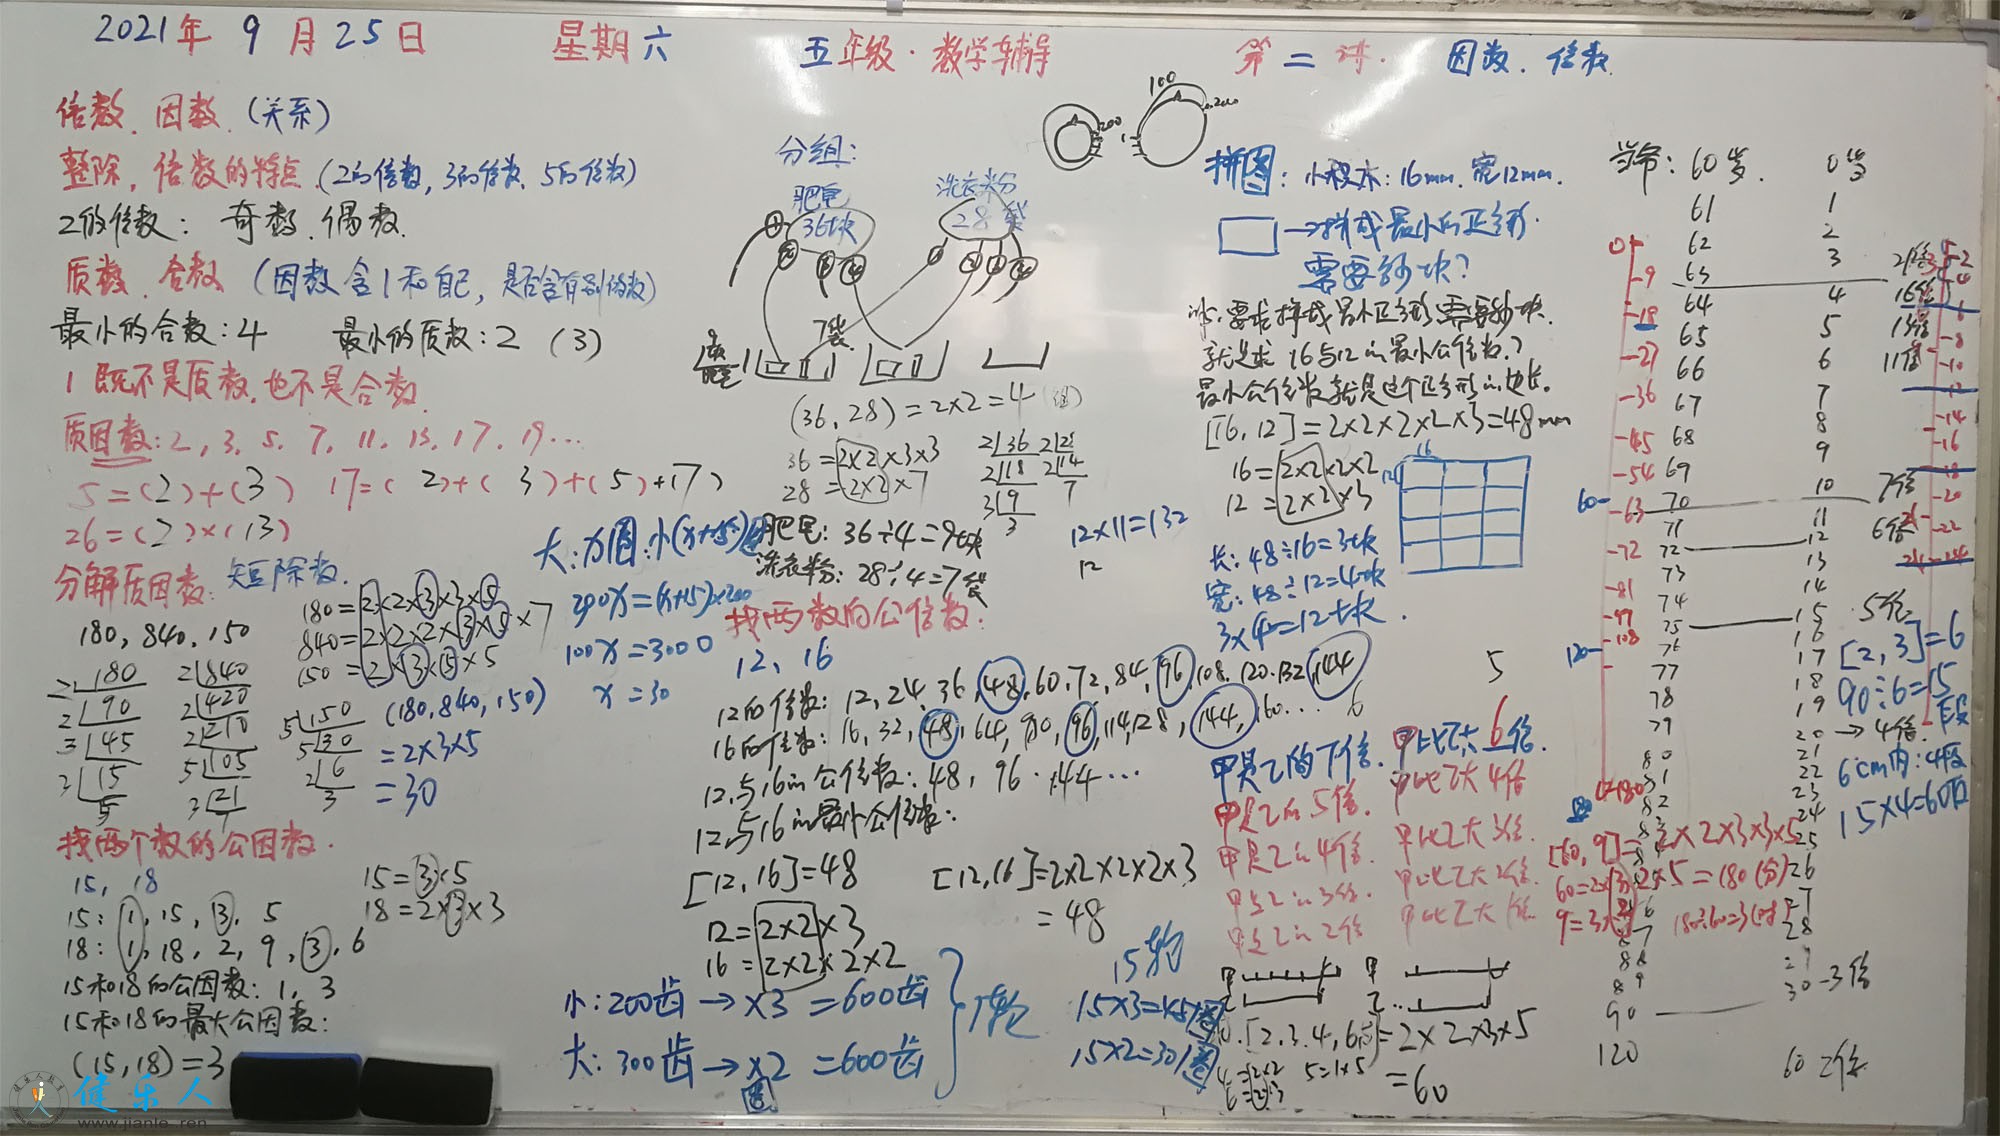 2021年 9月25日 星期六 五年级·数学辅导 第二讲. 因数. 倍数.
倍数. 因数. (关系)
整除, 倍数的特点. (2的倍数, 3的倍数. 5的倍数)
2的倍数: 奇数. 偶数.
质数. 合数 (因数含1和自己, 是否含有别的数)
最小的合数: 4 最小的质数: 2 (3)
1既不是质数. 也不是合数.
质因数: 2, 3, 5, 7, 11, 13, 17, 19…
5=(2)+(3) 17=(2)+(3)+(5)+(7)
26=(2)×(13)
分解质因数: 短除数.
180, 840. 150
180=2×2×3×3×5
840=2×2×2×3×5×7
150=2×3×5×5
2 180
2 90
3 45
3 15
5
2 840
2 420
2 210
5 105
3 21
7
5 150
5 30
2 6
3
(180, 840, 150)
=2×3×5
=30
找两个数的公因数.
15, 18
15: 1, 15, 3, 5
18: 1, 18, 2, 9, 3, 6
15=3×5
18=2×3×3
15和18的公因数: 1, 3
15和18的最大公因数:
(15,18)=3
分组:
肥皂 36块
洗衣粉 28袋
7袋
(36, 28)=2×2=4(组)
36=2×2×3×3
28=2×2×7
2 36
2 18
3 9
3
2 28
2 14
7
肥皂: 36÷4=9块
洗衣粉: 28÷4=7袋
12×11=132
12
大: x圈. 小(x+15)圈
300x=(x+15)×200
100x=3000
x=30
找两数的公倍数:
12, 16
12的倍数: 12, 24, 36, 48, 60, 72, 84, 96, 108, 120, 132, 144
16的倍数: 16, 32, 48, 64, 80, 96, 114, 128, 144, 160…
12与16的公倍数: 48, 96, 144…
12与16的最小公倍数:
[12, 16]=48
12=2×2×3
16=2×2×2×2
[12,16]=2×2×2×2×3
=48
小: 200齿→×3=600齿
大: 300齿→×2=600齿
圈
15轮
15×3=45圈
15×2=30圈
100
200
拼图: 小积木: 16mm. 宽12mm.
→拼成最小的正方形.
需要多少块?
析: 要求拼成最小正方形需要多少块.
就是求16与12的最小公倍数.?
最小公倍数就是这个正方形的边长.
[16, 12]=2×2×2×2×3=48mm
16=2×2×2×2
12=2×2×3
16
12
长: 48÷16=3块
宽: 48÷12=4块
3×4=12块.
5
6
甲是乙的7倍. 甲比乙大6倍.
甲是乙的5倍. 甲比乙大4倍
甲是乙的4倍. 甲比乙大3倍.
甲是乙的3倍. 甲比乙大2倍.
甲是乙的2倍 甲比乙大1倍.
甲
乙
甲
乙
[2, 3, 4, 6, 5]=2×2×3×5
=60
4=2×2
6=2×3
5=1×5
[60, 9]=2×2×3×3×5=180(分)
9=3×3
180÷60=3(时)
爷爷: 60岁. 0岁
61 1
62 2
63 3 21倍
64 4 16倍
65 5 13倍
66 6 11倍
67 7
68 8
69 9
70 10 7倍
71 11
72 12 6倍
73 13
74 14
75 15 5倍
76 16
77 17
78 18
79 19
80 20→4倍.
81 21
82 22
23
24
25
26
27
28
29
90 30-3倍
120 60 2倍
0
9
18
27
36
45
54
63
72
81
97
108
60
120
180
2
4
6
8
10
12
14
16
18
20
22
24
[2, 3]=6
90÷6=15段
6cm内: 4段
15×4=60段
健乐人
www.jianle.ren